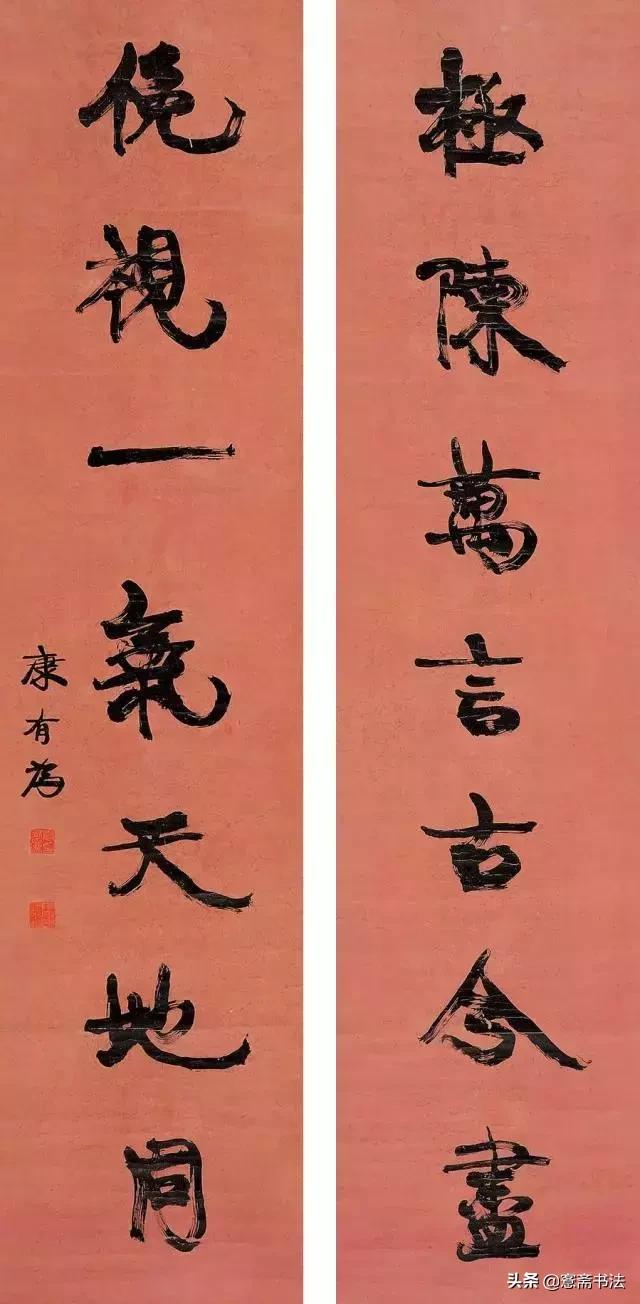 極陳萬言古今盡
俛視一氣天地同
康有為
头条 @愙斋书法